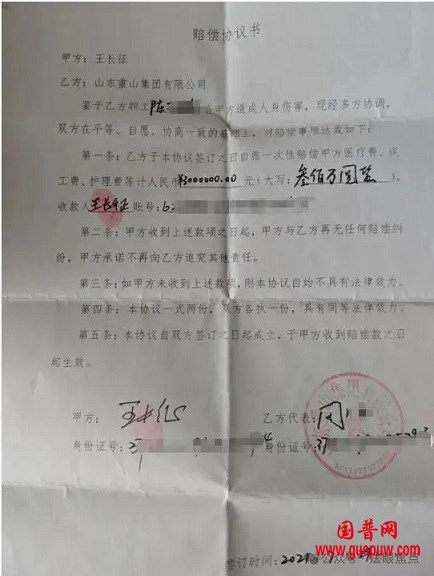 赔偿协议书
甲方：王长征
乙方：山东重山集团有限公司
鉴于乙方职工陈 给甲方造成人身伤害，现经多方协调，
双方在平等、自愿、协商一致的基础上，对赔偿事项达成如下：
第一条：乙方于本协议签订之日自愿一次性赔偿甲方医疗费、误
工费、护理费等计人民币¥3000000.00元（大写：叁佰万圆整），
收款人王长征账号：
第二条：甲方收到上述款项之日起，甲方与乙方再无任何赔偿纠
纷，甲方承诺不再向乙方追究其他责任。
第三条：如甲方未收到上述款项，则本协议自始不具有法律效力。
第四条：本协议一式两份，双方各执一份，具有同等法律效力。
第五条：本协议自双方签订之日起成立，于甲方收到赔偿款之日
起生效。
甲方：王长征
乙方代表：周
身份证号：3
身份证号：37
签订时间：2021
公众号 法眼焦点
国普网
www.guopuw.com